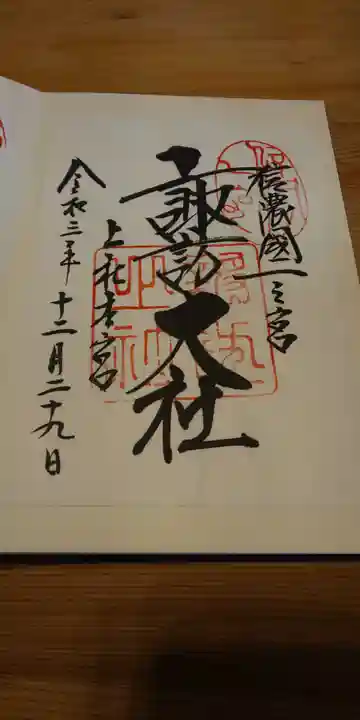 信濃國一之宮
諏訪大社
上社本宮
令和三年十二月二十九日